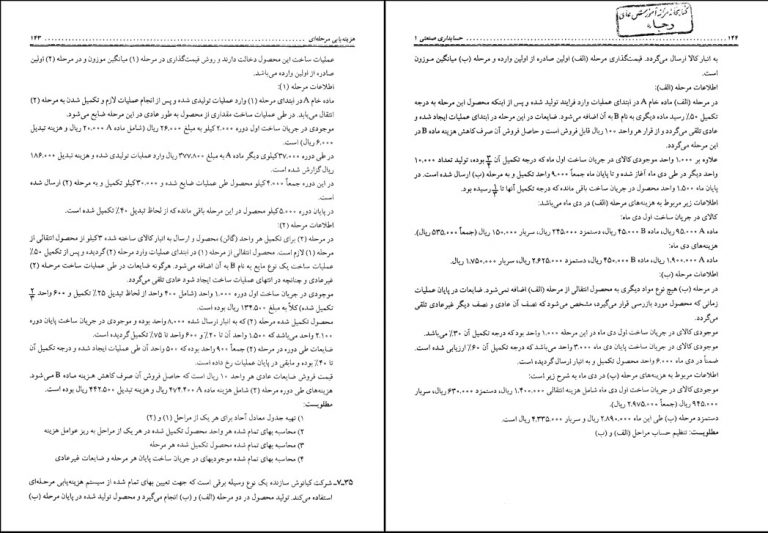 هزینه‌یابی مرحله‌ای ۱۴۳
عملیات ساخت این محصول دخالت دارند و روش قیمت‌گذاری در مرحله (۱) میانگین موزون و در مرحله (۲) اولین
صادره از اولین وارده می‌باشد.
اطلاعات مرحله (۱):
ماده خام A در ابتدای مرحله (۱) وارد عملیات تولیدی شده و پس از انجام عملیات لازم و تکمیل شدن به مرحله (۲)
انتقال می‌یابد. در طی عملیات ساخت مقداری از محصول به طور عادی در این مرحله ضایع می‌شود.
موجودی در جریان ساخت اول دوره ۲.۰۰۰ کیلو به مبلغ ۲۶.۰۰۰ ریال (شامل ماده A ۲۰.۰۰۰ ریال و هزینه تبدیل
۶.۰۰۰ ریال) است.
در طی دوره ۳۷.۰۰۰کیلوی دیگر ماده A به مبلغ ۳۷۷.۸۰۰ ریال وارد عملیات تولیدی شده و هزینه تبدیل ۱۸۶.۰۰۰
ریال گزارش شده است.
در این دوره جمعاً ۴.۰۰۰کیلو محصول طی عملیات ضایع شده و ۳۰.۰۰۰کیلو تکمیل و به مرحله (۲) ارسال شده
است.
در پایان دوره ۵.۰۰۰کیلو محصول در این مرحله باقی مانده که از لحاظ تبدیل ۴۰٪ تکمیل شده است.
اطلاعات مرحله (۲):
در مرحله (۲) برای تکمیل هر واحد (گالن) محصول و ارسال به انبار کالای ساخته شده ۳کیلو از محصول انتقالی از
مرحله (۱) لازم است. محصول انتقالی از مرحله (۱) در ابتدای عملیات وارد مرحله (۲) گردیده و پس از تکمیل ۵۰٪
عملیات ساخت یک نوع مایع به نام B به آن اضافه می‌شود. هرگونه ضایعات در طی عملیات ساخت مرحله (۲)
غیرعادی و چنانچه در انتهای عملیات ساخت ایجاد شود عادی تلقی می‌گردد.
موجودی در جریان ساخت اول دوره ۱.۰۰۰ واحد (شامل ۴۰۰ واحد از لحاظ تبدیل ۲۵٪ تکمیل و ۶۰۰ واحد
تکمیل شده) کلاً به مبلغ ۱۳۴.۵۰۰ ریال بوده است.
محصول تکمیل شده مرحله (۲) که به انبار ارسال شده ۸.۰۰۰ واحد بوده و موجودی در جریان ساخت پایان دوره
۲.۱۰۰ واحد می‌باشد که ۱.۵۰۰ واحد آن تا ۲۰٪ و ۶۰۰ واحد تا ۷۵٪ تکمیل گردیده است.
ضایعات طی دوره در مرحله (۲) جمعاً ۹۰۰ واحد بوده که ۵۰۰ واحد آن طی عملیات ایجاد شده و درجه تکمیل آن
تا ۴۰٪ بوده و مابقی در پایان عملیات رخ داده است.
قیمت فروش ضایعات عادی هر واحد ۱۰ ریال است که حاصل فروش آن صرف کاهش هزینه ماده B می‌شود.
هزینه‌های طی دوره مرحله (۲) شامل هزینه ماده A ۴۷۴.۴۰۰ ریال و هزینه تبدیل ۴۴۲.۵۰۰ ریال بوده است.
مطلوبیست:
۱) تهیه جدول معادل آحاد برای هر یک از مراحل (۱) و (۲)
۲) محاسبه بهای تمام شده هر واحد محصول تکمیل شده در هر یک از مراحل به ریز عوامل هزینه
۳) محاسبه بهای تمام شده محصول تکمیل شده هر مرحله
۴) محاسبه بهای تمام شده موجودیهای در جریان ساخت پایان هر مرحله و ضایعات غیرعادی
۷-۳۵ـ شرکت کیانوش سازنده یک نوع وسیله برقی است که جهت تعیین بهای تمام شده از سیستم هزینه‌یابی مرحله‌ای
استفاده می‌کند. تولید محصول در دو مرحله (الف) و (ب) انجام می‌گیرد و محصول تولید شده در پایان مرحله (ب)
۱۴۴ حسابداری صنعتی ۱
به انبار کالا ارسال می‌گردد. قیمت‌گذاری مرحله (الف) اولین صادره از اولین وارده و مرحله (ب) میانگین موزون
است.
اطلاعات مرحله (الف):
در مرحله (الف) ماده خام A در ابتدای عملیات وارد فرایند تولید شده و پس از اینکه محصول این مرحله به درجه
تکمیل ۵۰٪ رسید ماده دیگری به نام B به آن اضافه می‌شود. ضایعات در این مرحله در ابتدای عملیات ایجاد شده و
عادی تلقی می‌گردد و از قرار هر واحد ۱۰۰ ریال قابل فروش است و حاصل فروش آن صرف کاهش هزینه ماده B در
این مرحله می‌گردد.
علاوه بر ۱.۰۰۰ واحد موجودی کالای در جریان ساخت اول ماه که درجه تکمیل آن بوده، تولید تعداد ۱۰.۰۰۰
واحد دیگر در طی دی ماه آغاز شده و تا پایان ماه جمعاً ۹.۰۰۰ واحد تکمیل و به مرحله (ب) ارسال شده است. در
پایان ماه ۱.۵۰۰ واحد محصول در جریان ساخت باقی مانده که درجه تکمیل آنها تا رسیده بود.
اطلاعات زیر مربوط به هزینه‌های مرحله (الف) در دی ماه می‌باشد:
کالای در جریان ساخت اول دی ماه:
ماده A ۹۵.۰۰۰ ریال، ماده B ۴۵.۰۰۰ ریال، دستمزد ۲۴۵.۰۰۰ ریال، سربار ۱۵۰.۰۰۰ ریال (جمعاً ۵۳۵.۰۰۰ ریال).
هزینه‌های دی ماه:
ماده A ۱.۹۰۰.۰۰۰ ریال، ماده B ۴۵۰.۰۰۰ ریال، دستمزد ۲.۶۲۵.۰۰۰ ریال، سربار ۱.۷۵۰.۰۰۰ ریال.
اطلاعات مرحله (ب):
در مرحله (ب) هیچ نوع مواد دیگری به محصول انتقالی از مرحله (الف) اضافه نمی‌شود. ضایعات در پایان عملیات
زمانی که محصول مورد بازرسی قرار می‌گیرد، مشخص می‌شود که نصف آن عادی و نصف دیگر غیرعادی تلقی
می‌گردد.
موجودی کالای در جریان ساخت اول دی ماه در این مرحله ۱.۰۰۰ واحد بود که درجه تکمیل آن ۳۰٪ می‌باشد.
موجودی کالای در جریان ساخت پایان دی ماه ۳.۰۰۰ واحد می‌باشد که درجه تکمیل آن ۶۰٪ ارزیابی شده است.
ضمناً در دی ماه ۶.۰۰۰ واحد محصول تکمیل و به انبار ارسال گردیده است.
اطلاعات مربوط به هزینه‌های مرحله (ب) در دی ماه به شرح زیر است:
موجودی کالای در جریان ساخت اول دی ماه شامل هزینه انتقالی ۱.۴۰۰.۰۰۰ ریال، دستمزد ۶۳۰.۰۰۰ ریال، سربار
۹۴۵.۰۰۰ ریال (جمعاً ۲.۹۷۵.۰۰۰ ریال).
دستمزد مرحله (ب) طی این ماه ۲.۸۹۰.۰۰۰ ریال و سربار ۴.۳۳۵.۰۰۰ ریال است.
مطلوبیست: تنظیم حساب مراحل (الف) و (ب)